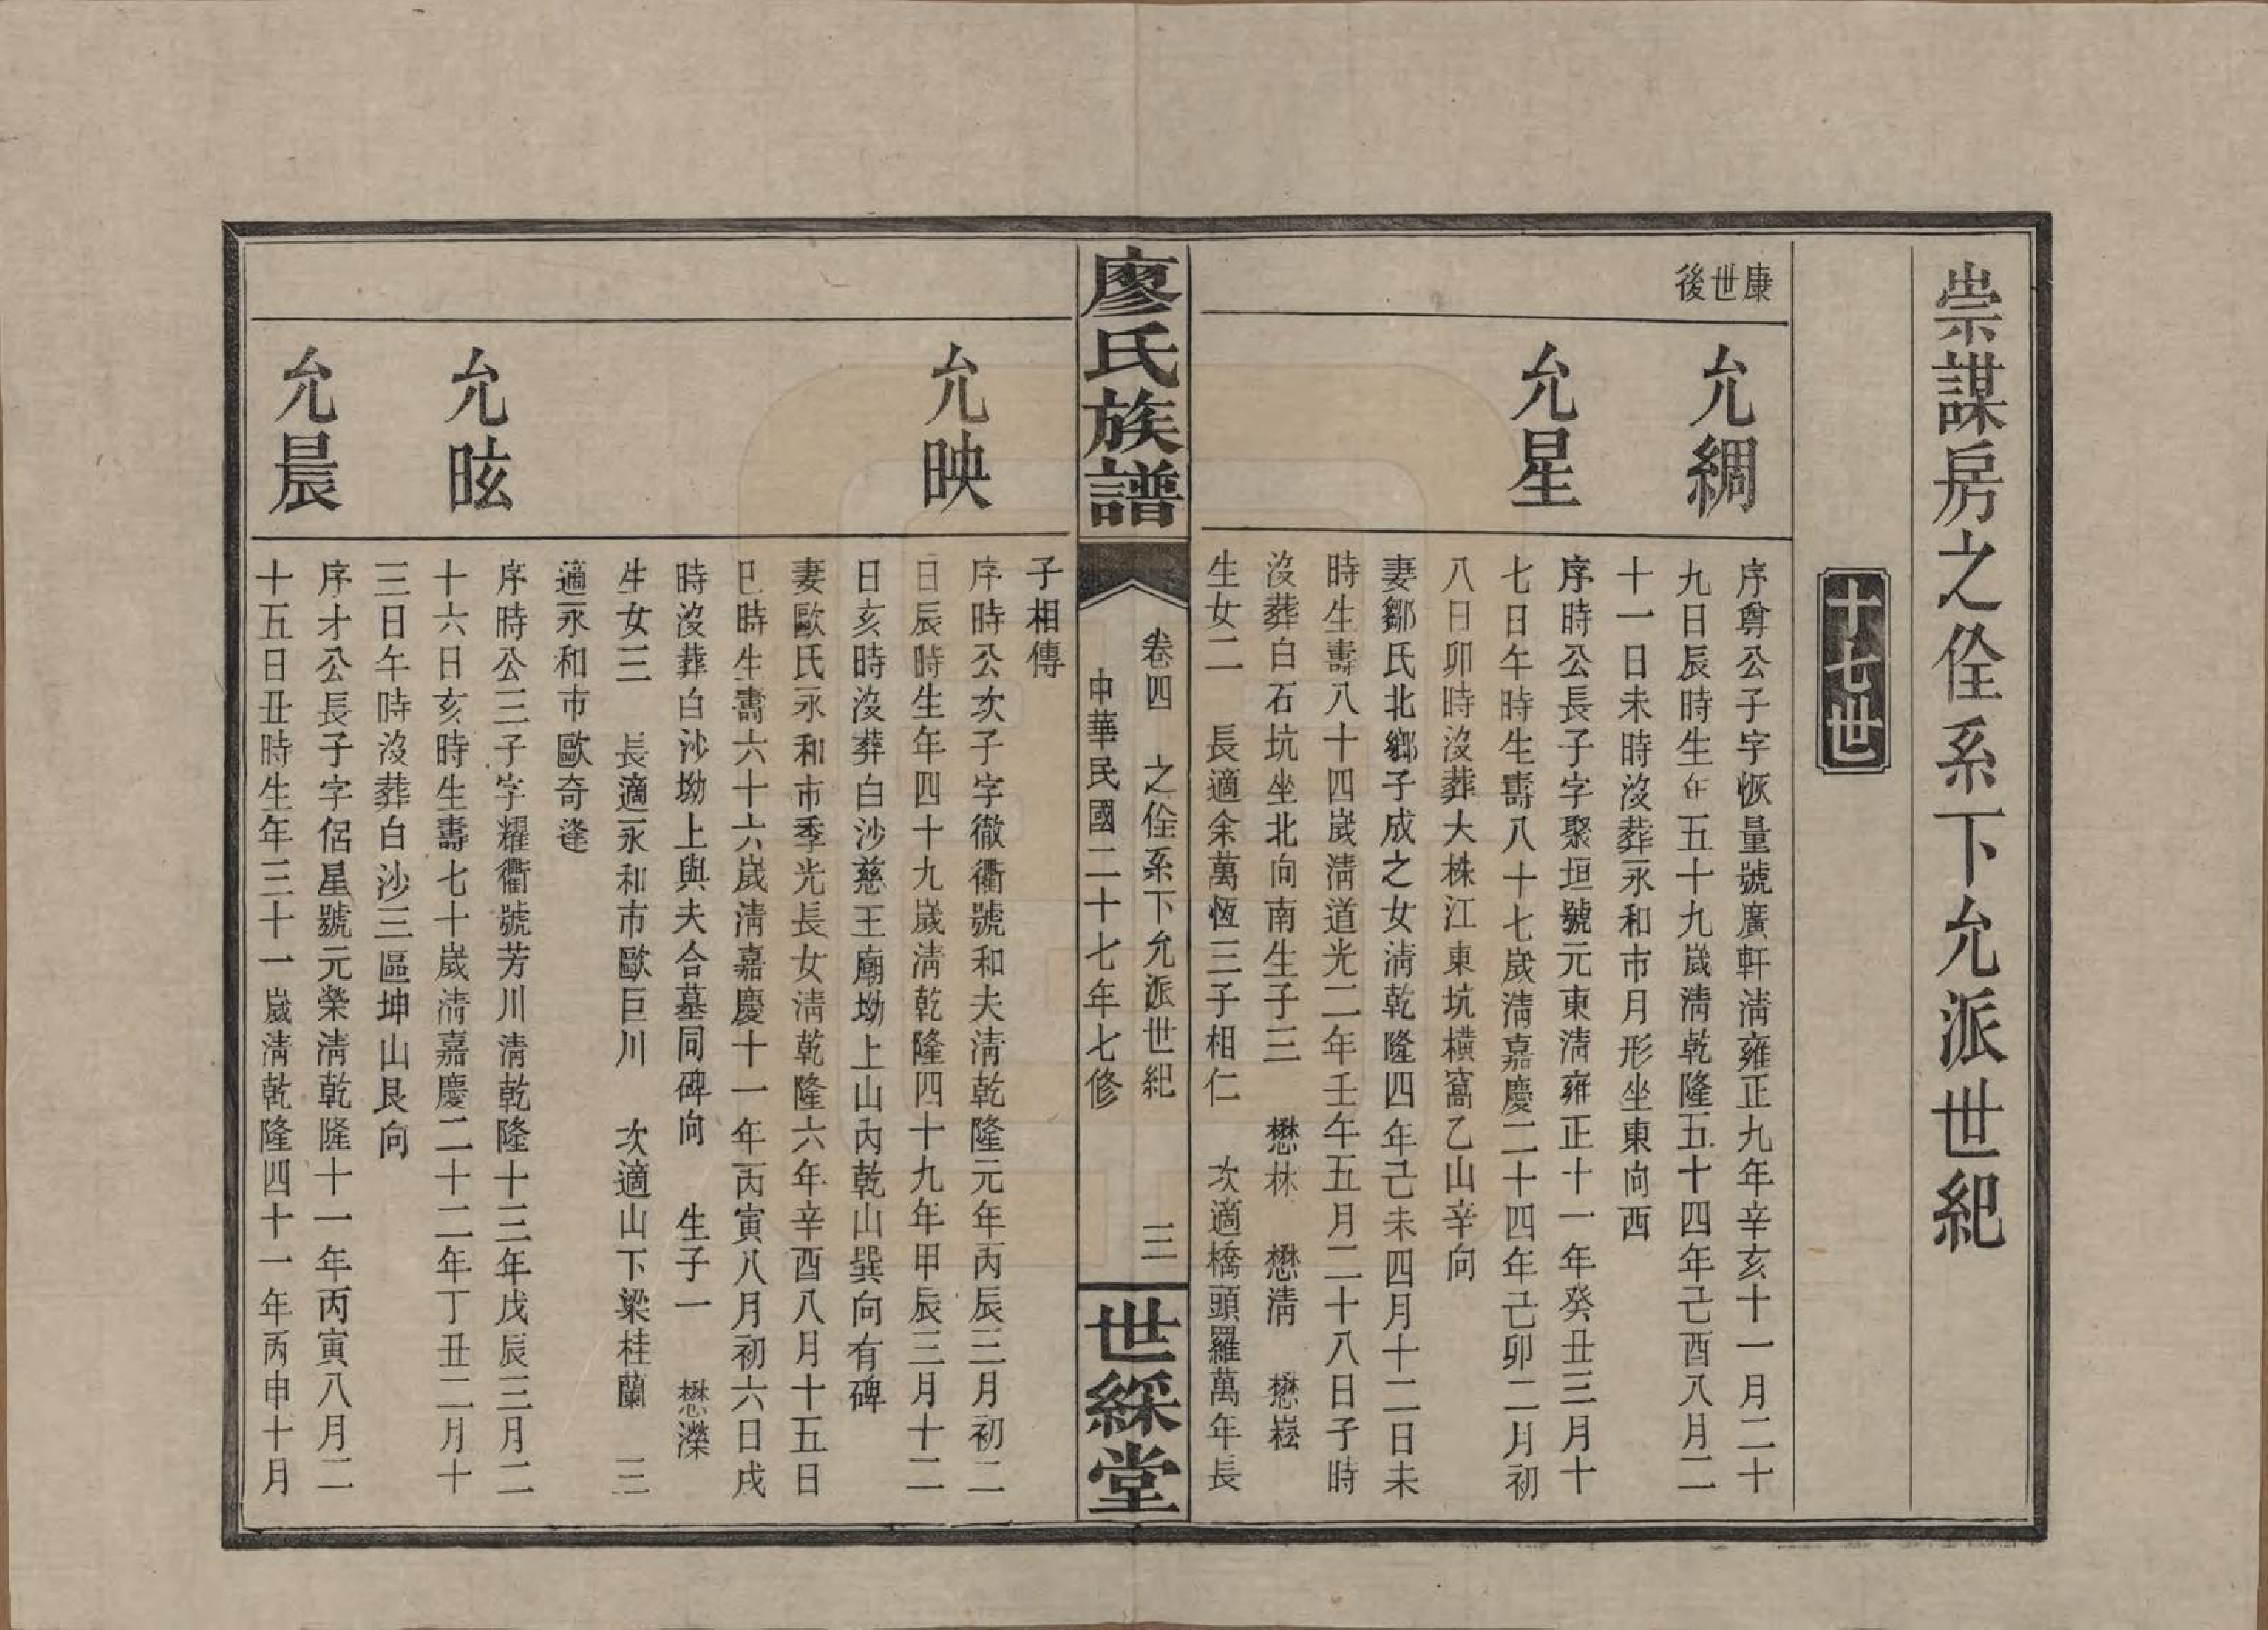 崇謀房之佺系下允派世紀
十七世
康世後
允綢
序尊公子字恢量號廣軒淸雍正九年辛亥十一月二十
九日辰時生年五十九歲淸乾隆五十四年己酉八月二
十一日未時沒葬永和市月形坐東向西
允星
序時公長子字聚垣號元東淸雍正十一年癸丑三月十
七日午時生壽八十七歲淸嘉慶二十四年己卯二月初
八日卯時沒葬大株江東坑橫窩乙山辛向
妻鄒氏北鄉子成之女淸乾隆四年己未四月十二日未
時生壽八十四歲淸道光二年壬午五月二十八日子時
沒葬白石坑坐北向南生子三　懋林　懋淸　懋崧
生女二　長適余萬恆三子相仁　次適橋頭羅萬年長
廖氏族譜
卷四　之佺系下允派世紀　三
中華民國二十七年七修
世綵堂
子相傳
允映
序時公次子字徹衢號和夫淸乾隆元年丙辰三月初二
日辰時生年四十九歲淸乾隆四十九年甲辰三月十二
日亥時沒葬白沙慈王廟坳上山內乾山巽向有碑
妻歐氏永和市季光長女淸乾隆六年辛酉八月十五日
巳時生壽六十六歲淸嘉慶十一年丙寅八月初六日戌
時沒葬白沙坳上與夫合墓同碑向　生子一　懋濼
生女三　長適永和市歐巨川　次適山下梁桂蘭　三
適永和市歐奇逄
允昡
序時公三子字耀衢號芳川淸乾隆十三年戊辰三月二
十六日亥時生壽七十歲淸嘉慶二十二年丁丑二月十
三日午時沒葬白沙三區坤山艮向
允晨
序才公長子字侶星號元榮淸乾隆十一年丙寅八月二
十五日丑時生年三十一歲淸乾隆四十一年丙申十月